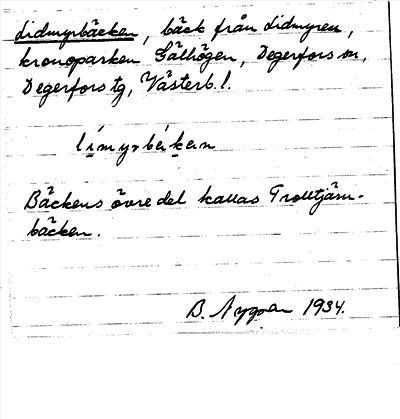 Lidmyrbäcken, bäck från Lidmyren,
kronoparken Gälhögen, Degerfors sn,
Degerfors tg, Västerb. l.
Bäckens övre del kallas Trolltjärn-
bäcken.
B. Nygren 1934.